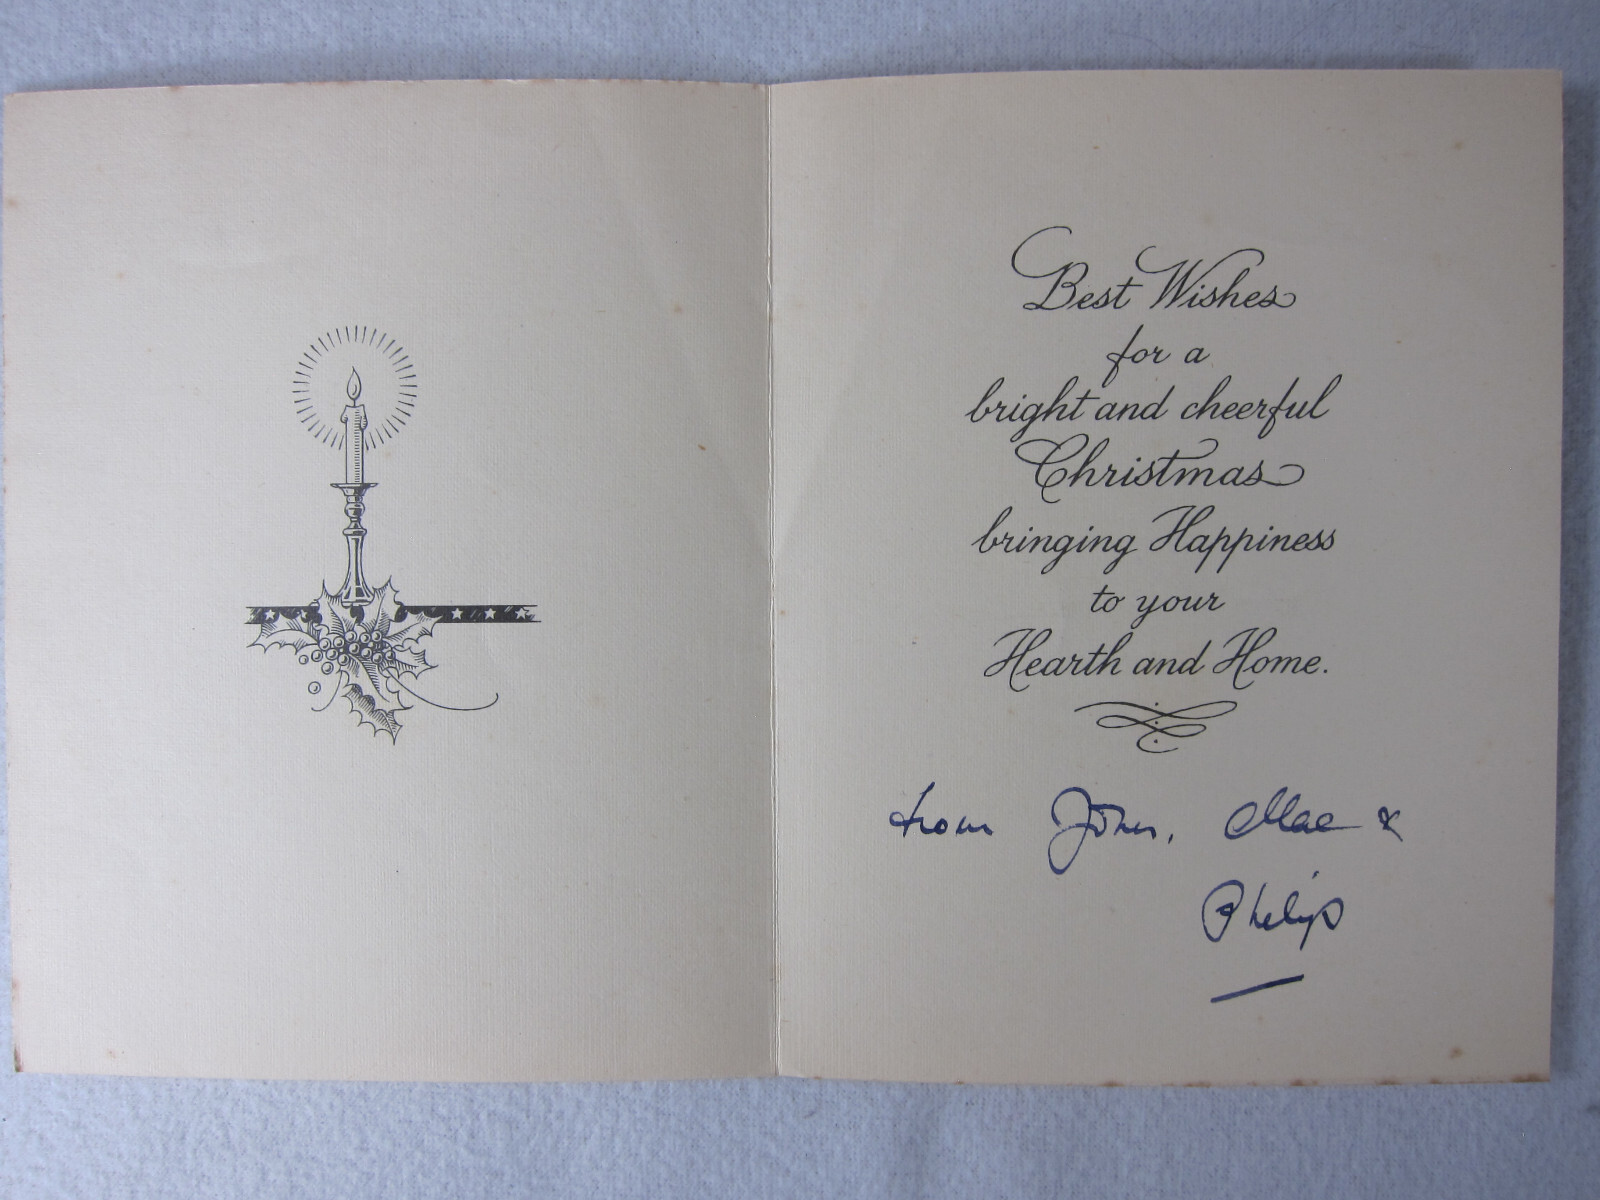 Best Wishes
for a
bright and cheerful
Christmas
bringing Happiness
to your
Hearth and Home.
from John, Mae &
Philip